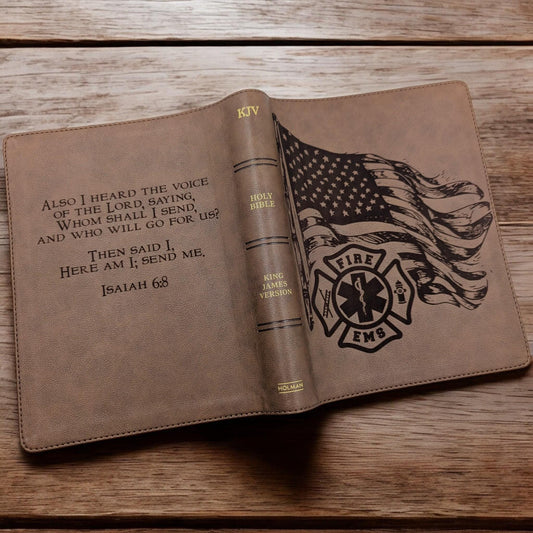 Also I heard the voice
of the Lord, saying,
Whom shall I send,
and who will go for us?
Then said I,
Here am I; send me.
Isaiah 6:8
KJV
HOLY
BIBLE
KING
JAMES
VERSION
HOLMAN
FIRE
EMS